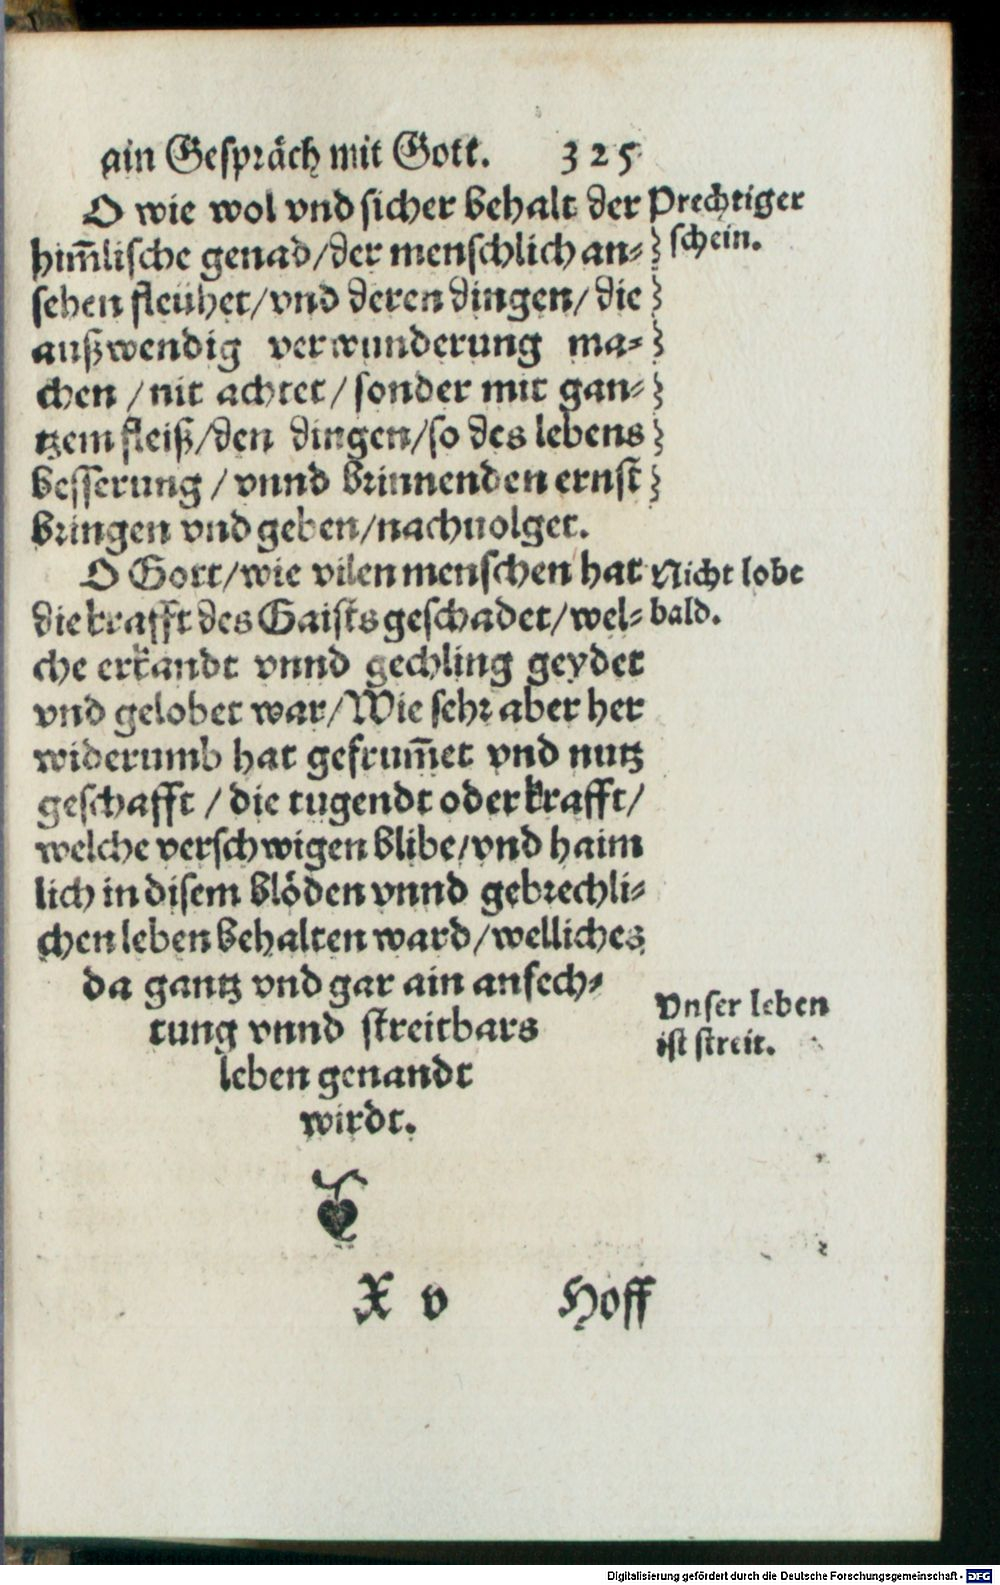 ain Gespräch mit Gott. 325
O wie wol vnd sicher behalt der
him̃lische genad/der menschlich an-
sehen fleühet/vnd deren dingen/die
außwendig verwunderung ma-
chen/nit achtet/sonder mit gan-
tzem fleiß/den dingen/so des lebens
besserung/vnnd brinnenden ernst
bringen vnd geben/nachuolget.
Prechtiger
schein.
O Gott/wie vilen menschen hat
die krafft des Gaists geschadet/wel-
che erkandt vnnd gechling geydet
vnd gelobet war/Wie sehr aber her
widerumb hat gefrum̃et vnd nutz
geschafft/die tugendt oder krafft/
welche verschwigen blibe/vnd haim
lich in disem blöden vnnd gebrechli-
chen leben behalten ward/welliches
da gantz vnd gar ain anfech-
tung vnnd streitbars
leben genandt
wirdt.
Nicht lobe
bald.
Vnser leben
ist streit.
X v Hoff
Digitalisierung gefördert durch die Deutsche Forschungsgemeinschaft - DFG